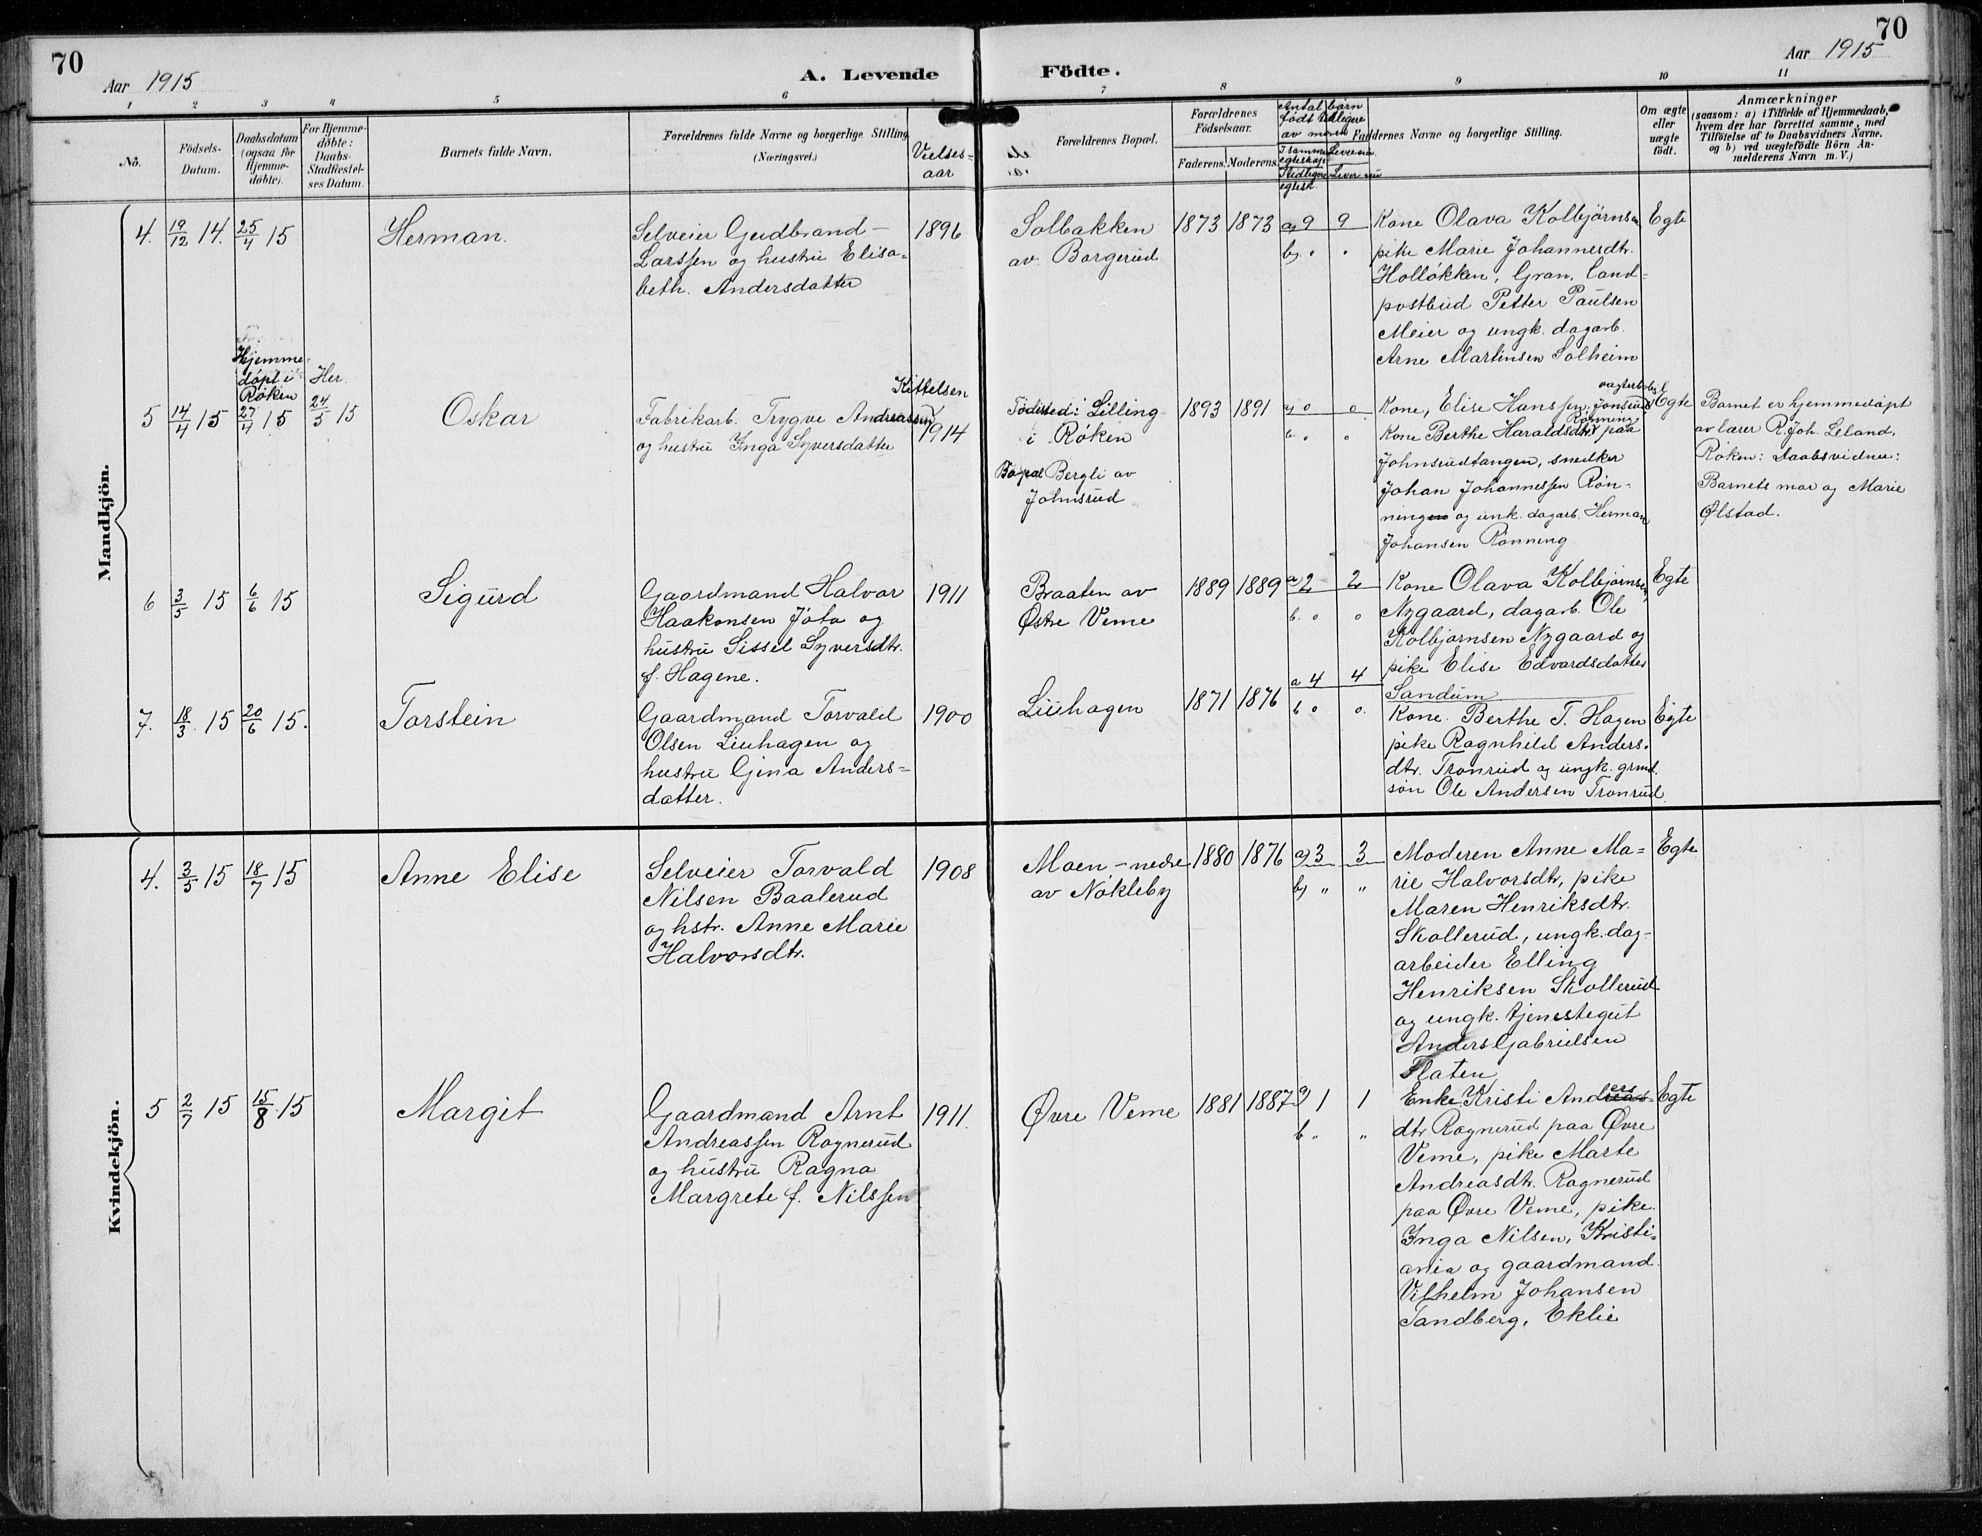 70
70
Aar 1915
A. Levende
Födte.
Aar 1915
1 2 3 4 5 6 7 8 9 10 11
No.
Födsels-
Datum.
Daabsdatum
(ogsaa for
Hjemme-
døbte).
For Hjemme-
döbte:
Daabs-
Stadfæstel-
ses Datum.
Barnets fulde Navn.
Forældrenes fulde Navne og borgerlige Stilling
(Næringsvei.)
Vielses-
aar
Forældrenes Bopæl.
Forældrenes
Födselsaar.
Faderens. Moderens.
Antal børn
født tidligere
av moren
I samme
egteskap
Tidligere
egtesk.
Lever nu
Faddernes Navne og borgerlige Stilling.
Om ægte
eller
uægte
födt.
Anmærkninger
(saasom: a) i Tilfælde af Hjemmedaab,
hvem der har forrettet samme, med
Tilföielse af to Daabsvidners Navne.
og b) ved uægtefödte Börn An-
melderens Navn m. V.)
Mandkjön.
4. 19/12 14. 25/4 15
Herman.
Selveier Gudbrand
Larssen og hustru Elisa-
beth. Andersdatter
1896
Solbakken
av Borgerud
1873 1873
a) 9 9
b) " "
Kone Olava Kolbjørnsen
pike Marie Johannesdtr.
Holløkken, Gran, Land-
postbud Petter Paulsen
Meier og ungk. dagarb.
Arne Martinsen Solheim
Egte
Hjemme-
døpt i
Røken
Her
5 14/4 15 27/4 15 24/5 15
Oskar
Kittelsen
Fabrikarb. Trygve Andreassen
og hustru Inga Syversdatter
1914
Fødested: Lilling
i Røken
Bopæl Bergli av
Johnsrud
1893 1891
a) 0 0
b. " "
Kone, Elise Hanssen, Jonsrud
Rønning
Kone Berthe Haraldsdtr paa
Johnsrudtangen, snedker
Johan Johannessen Røn-
ningen og unk. dagarb. Herman
Johansen Rønning
Egte
Barnet er hjemmedøpt
av lærer R. Joh. Leland,
Røken: Daabsvidner:
Barnets mor og Marie
Ølstad.
6 3/5 15 6/6 15
Sigurd
Gaardmand Halvor
Haakonsen Jota og
hustru Sissel Syversdtr.
f. Hagene.
1911
Braaten av
Østre Veme
1889 1889
a 2 2
b. 0 0
Kone Olava Kolbjørnsen,
Nygaard, dagarb. Ole
Kolbjørnsen Nygaard og
pike Elise Edvardsdatter
Sandum
Egte
7. 18/3 15 20/6 15.
Torstein
Gaardmand Torvald
Olsen Liuhagen og
hustru Gina Anders-
datter.
1900
Liuhagen
1871 1876
a 4 4
b 0 0.
Kone. Berthe T. Hagen
pike Ragnhild Anders-
dtr. Tronrud og ungk. grmd.
søn Ole Andersen Tronrud
Egte
Kvindekjön.
4. 3/5 15 18/7 15
Anne Elise
Selveier Torvald
Nilsen Baalerud
og hstr. Anne Marie
Halvorsdtr.
1908
Moen - nedre
av Nøkleby
1880 1876
a) 3 3
b) " "
Moderen Anne Ma-
rie Halvorsdtr, pike
Maren Henriksdtr.
Skollerud, ungk. dag-
arbeider Elling
Henriksen Skollerud
og ungk. tjenestegut
Anders Gabrielsen
Flaten
Egte
5 2/7 15 15/8 15
Margit
Gaardmand Arnt
Andreassen Rognerud
og hustru Ragna
Margrete f. Nilssen
1911.
Øvre Veme
1881 1887
a 1 1
b " "
Enke Kristi Anders-
dtr Rognerud paa Øvre
Veme, pike Marte
Andreasdtr. Rognerud
paa Øvre Veme, pike
Inga Nilsen, Kristi-
ania og gaardmand
Vilhelm Johansen
Tandberg, Eklie
Egte